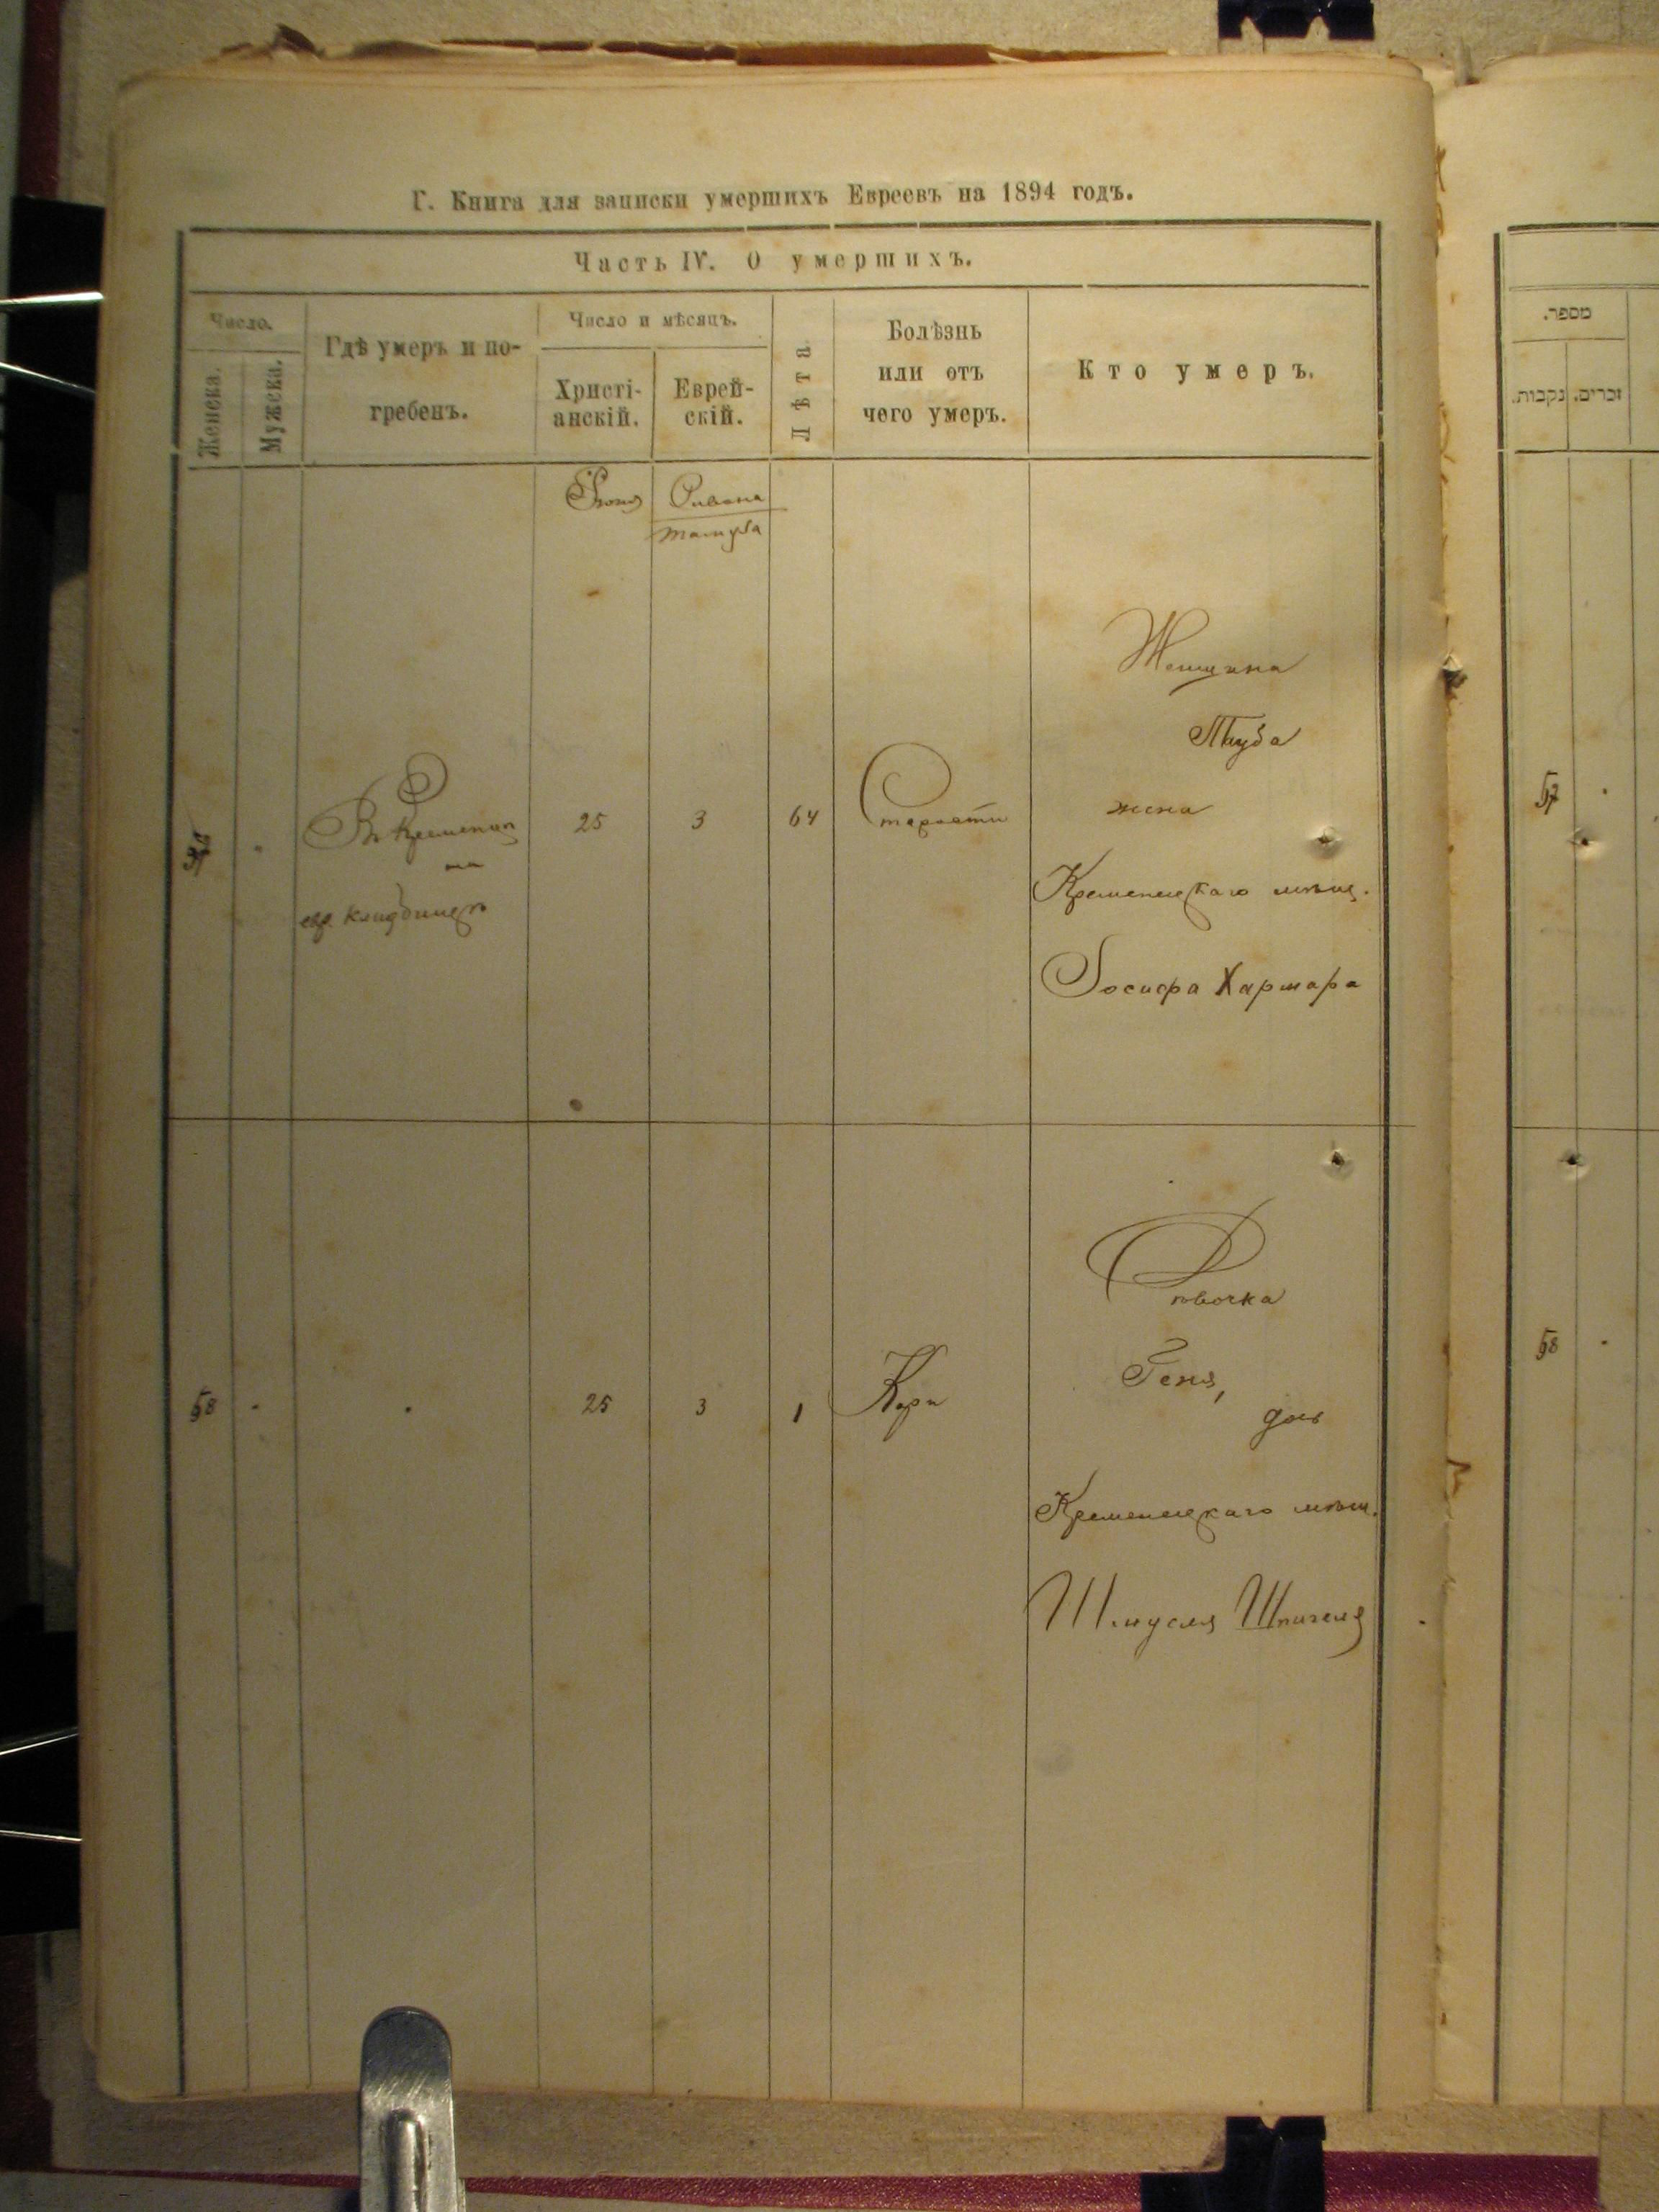 Г. Книга для записки умершихъ Евреевъ на 1894 годъ.
Часть IV. О умершихъ.
Число.
Женска.
Мужска.
Гдѣ умеръ и по-
гребенъ.
Число и мѣсяцъ.
Христі-
анскій.
Еврей-
скій.
Лѣта
Болѣзнь
или отъ
чего умеръ.
Кто умеръ.
Іюня
Сивона
тамуза
Женщина
Тауба
жена
57 Въ Кременцѣ 25 3 64 Старости
на
евр. кладбищѣ
Кременецкаго мѣщ.
Іосифа
Дѣвочка
Геня,
дочь
58 25 3 1 Кори
Кременецкаго мѣщ.
Шмуеля Шпигеля
מספר.
נקבות.
זכרים.
57
58